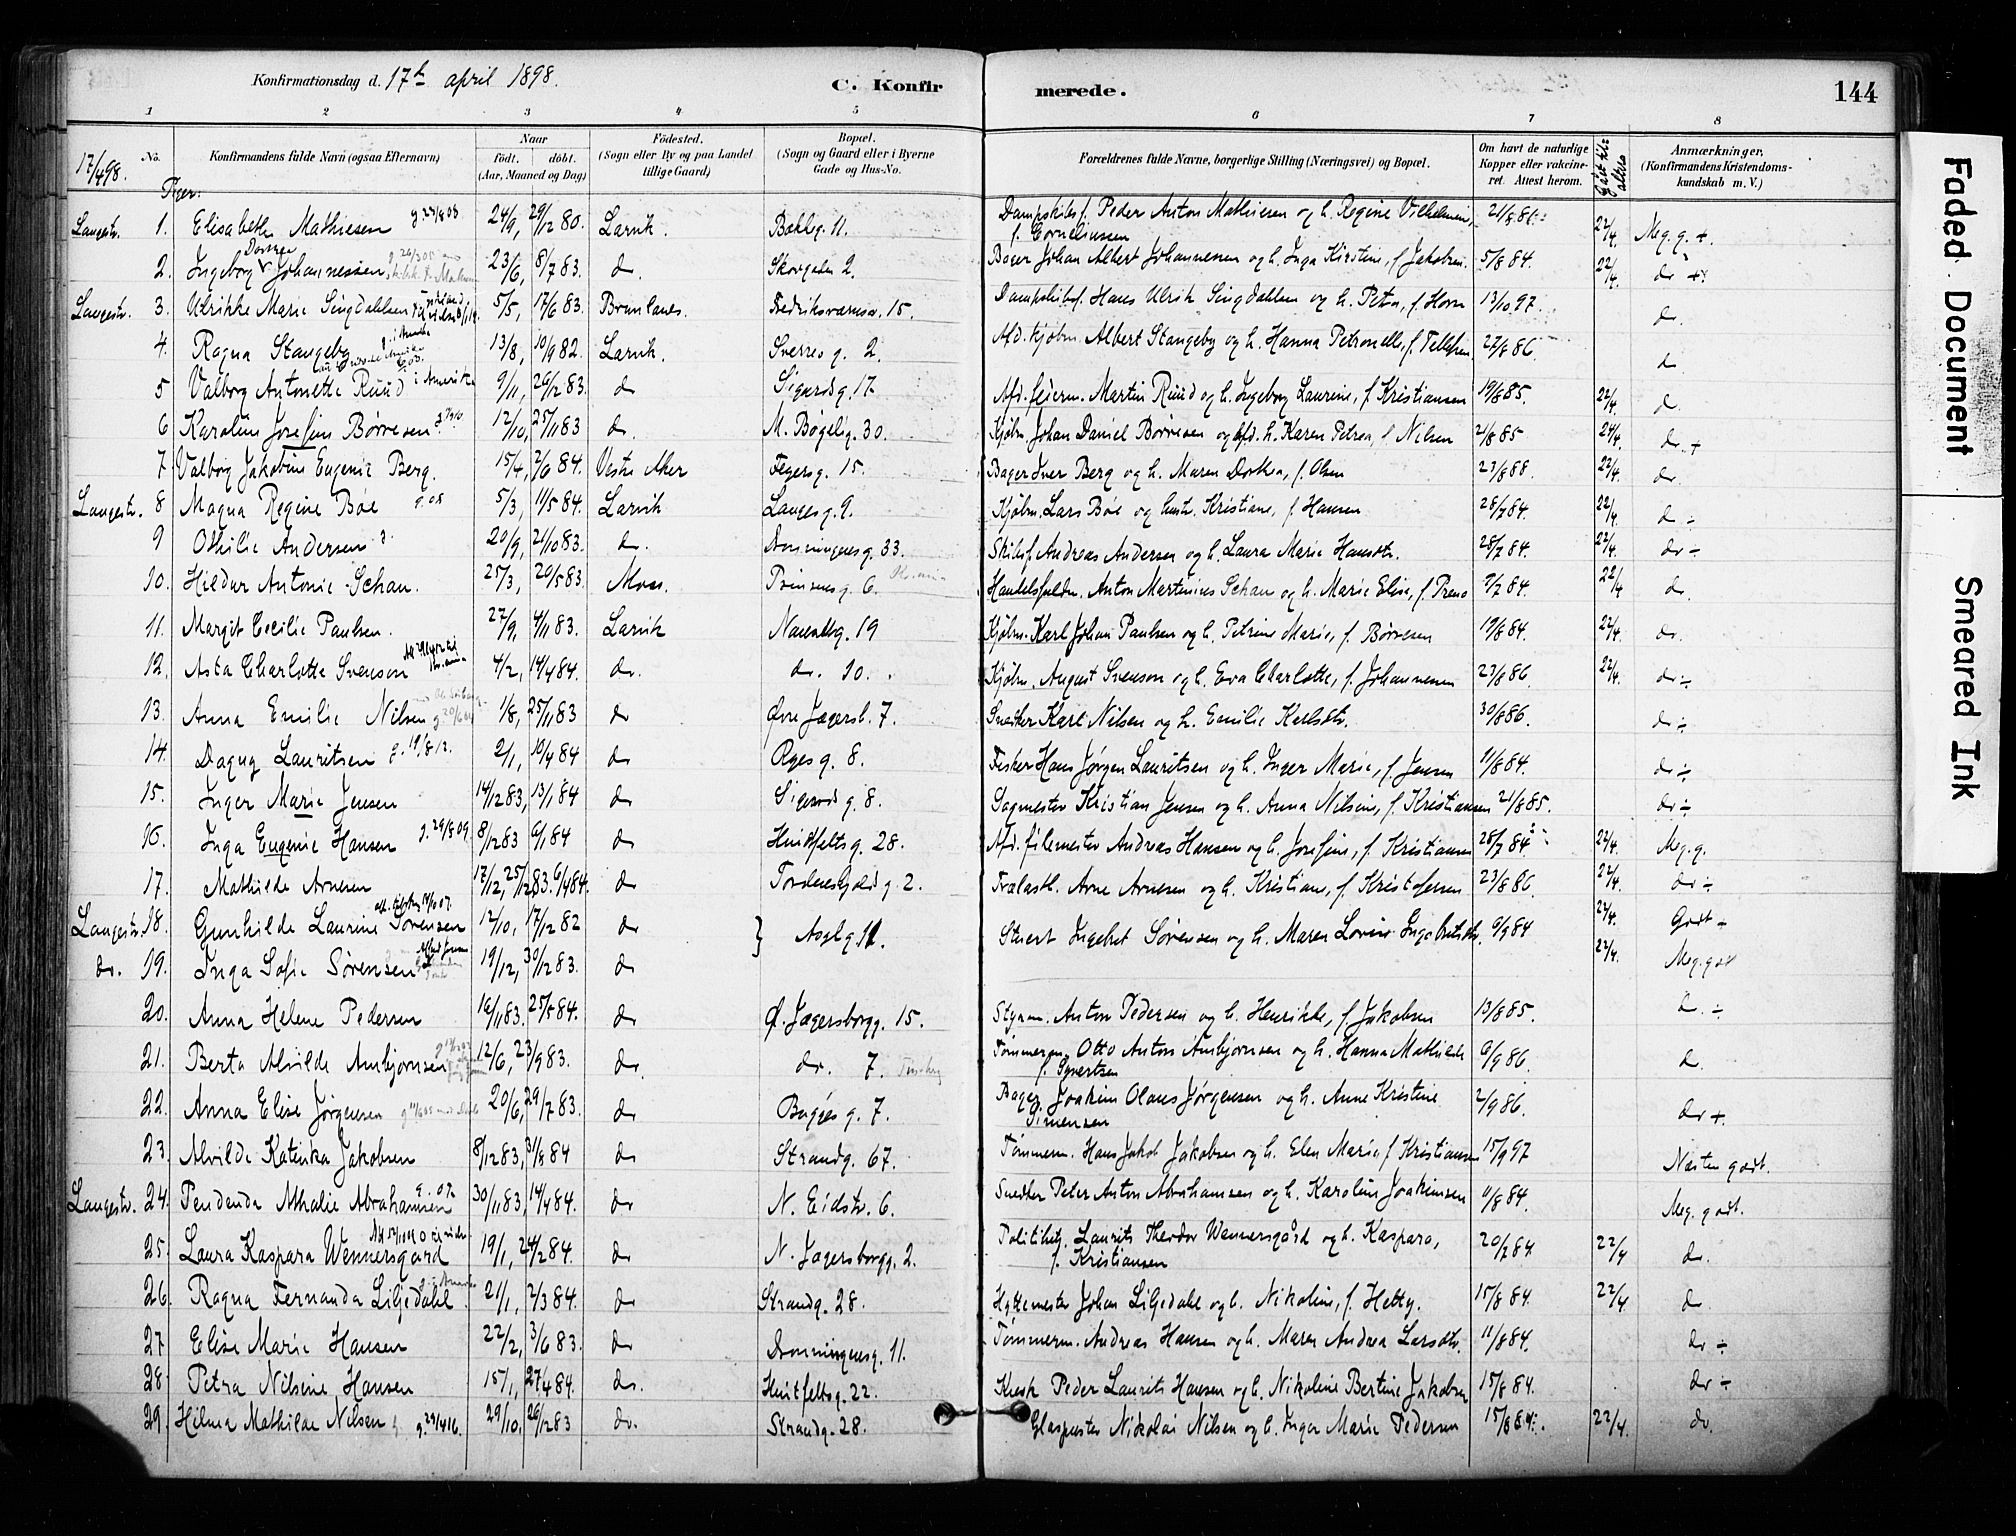 Konfirmationsdag d. 17de april 1898.
C. Konfirmerede.
144
1 2 3 4 5 6 7 8
17/4 98. No. Konfirmandens fulde Navn (ogsaa Efternavn) Naar født. døbt. (Aar, Maaned og Dag) Fødested. (Sogn eller By og paa Landet tillige Gaard) Bopæl. (Sogn og Gaard eller i Byerne Gade og Hus-No. Forældrenes fulde Navne, borgerlige Stilling (Næringsvei) og Bopæl. Om havt de naturlige Kopper eller vakcineret. Attest herom. Anmærkninger, (Konfirmandens Kristendomskundskab m. V.)
Piger:
Langestr. 1. Elisabeth Mathiesen 24/9, 29/12 80. Larvik. 11. Dampskibsf. Peder Anton Mathiesen og h. Regine Vilhelmine, f. Corneliussen 21/8 86. 22/4. Meg. g. +.
2. Ingeborg Dorthea Johannessen 23/6, 8/7 83. do. Skovgaden 2. Bager Johan Albert Johannessen og h. Inga Kirstine, f. Jakobsen. 5/8 84. 22/4. do +
Langestr. 3. Ulrikke Marie Singdahlsen 5/5, 17/6 83. Brunlanes. Fredriksværnsv. 15. Dampskibsf. Hans Ulrik Singdahlsen og h. Petra, f. Horn 13/10 97. do.
4. Ragna Stangeby 13/8, 10/9 82. Larvik. Sverres g. 2. Afd. kjøbm. Albert Stangeby og h. Hanna Petronelle, f. Tellefsen 27/8 86. do.
5 Valborg Antonette Ruud i Amerika 9/11, 26/12 83. do Sigurdsg. 17. Afd. feierm. Martin Ruud og h. Ingeborg Laurine, f. Kristiansen 19/8 85. 22/4. do.
6 Karoline Josefine Børresen 12/10, 25/11 83 do. M. Bøgelig. 30. Kjøbm. Johan Daniel Børresen og afd. h. Karen Petrea, f. Nilsen 2/8 85 24/4. do. +
7 Valborg Jakobine Eugenie Berg. 15/4, 2/6 84. Vestre Aker Fegersg. 15. Bager Iver Berg og h. Maren Dorthea, f. Olsen 23/8 88. 22/4. do.
Langestr. 8 Magna Regine Bøe g. 08 5/3, 11/5 84. Larvik Langes g. 9. Kjøbm. Lars Bøe og hustr. Kristiane, f. Hansen 28/7 84. 22/4. do ÷
9 Othilie Andersen 20/9, 21/10 83. do. Dronningensg. 33. Skibsf. Andreas Andersen og h. Laura Marie Hansdtr. 28/7 84. 22/4. do ÷
10. Hildur Antonie Schau. 25/3, 20/5 83. Moss. Prinsensg. 6 Handelsfuldm. Anton Martinius Schau og h. Marie Elise, f. 7/7 84. 22/4 do.
11. Margit Cecilie Paulsen. 27/9, 4/11 83. Larvik Nansetg. 19 Kjøbm. Karl Johan Paulsen og h. Petrine Marie, f. Børresen 19/8 84. 22/4. do.
12. Asta Charlotte Svenson 4/2, 14/4 84. do. do. 10. Kjøbm. August Svenson og h. Eva Charlotte, f. Johannesen 23/8 86. 22/4. do ÷
13. Anna Emilie Nilsen 1/8, 25/11 83 do Øvre Jægersb. 7. Snedker Karl Nilsen og h. Emilie Karlsdtr. 30/8 86. do ÷
14. Dagny Lauritsen g. 19/8 12. 2/1, 10/4 84 do Ryes g. 8. Fisker Hans Jørgen Lauritsen og h. Inger Marie, f. Jensen 11/8 84. do ÷
15. Inger Marie Jensen 14/12 83, 13/1 84 do Sigurds g. 8. Sagmester Kristian Jensen og h. Anna Nilsine, f. Kristiansen 21/8 85. do ÷
16. Inga Eugenie Hansen g. 29/8 09. 8/12 83 6/1 84 do Huitfelts g. 28. Afd. filemester Andreas Hansen og h. Josefine, f. Kristiansen 28/7 84 22/4. Meg. g.
17. Mathilde Arnesen 17/12, 25/12 83. 6/4 84. do Tordenskjolds g. 2. Trælasth. Arne Arnesen og h. Kristiane, f. Kristofersen 23/8 86. 22/4. do ÷
Langestr. 18. Gunhilde Laurine Sørensen 12/10, 17/12 82 do } Asyl g 11. Stuert Ingebret Sørensen og h. Maren Lovise Ingebretsdtr. 6/9 84 22/4. Godt ÷
do. 19. Inga Sofie Sørensen 19/12, 30/12 83. do 22/4. Meg. godt
20. Anna Helene Pedersen 16/11 83. 25/5 84. do Ø. Jægersborgg. 15. Styrm. Anton Pedersen og h. Henrikke, f. Jakobsen 13/8 85. do. ÷
21. Berta Alvilde Anbjørnsen 12/6, 23/9 83. do. do. 7. Tømmerm. Otto Anton Anbjørnsen og h. Hanna Mathilde f. Syvertsen 6/9 86. do.
22. Anna Elise Jørgensen 20/6, 29/7 83. do Bugges g. 7. Bager Joakim Olaus Jørgensen og h. Anne Kristine Simensen 2/9 86. do +.
23. Alvilde Katinka Jakobsen 8/12 83, 31/8 84 do Strandg. 67. Tømmerm. Hans Jakob Jakobsen og h. Elen Marie, f. Kristiansen 15/9 97 Næsten godt.
Langestr. 24. Pendenda Athalie Abrahamsen g. 07. 30/11 83, 14/4 84. do N. Eidstr. 6. Snedker Peter Anton Abrahamsen og h. Karoline Joakimsen 11/8 84. Meg. godt.
25. Laura Kaspara Wennersgaard 19/1, 24/2 84. do N. Jægersborgg. 2. Politibetj. Laurits Theodor Wennersgård og h. Kaspara, f. Kristiansen 20/7 84 22/4 do.
26. Ragna Fernanda Liljedahl 21/1, 2/3 84. do Strandg. 28. Hyttemester Johan Liljedahl og h. Nikoline, f. Hetty. 15/8 84. 22/4. do
27 Elise Marie Hansen 22/2, 3/6 83. do Dronningensg. 11. Tømmerm. Andreas Hansen og h. Maren Andrea Larsdtr. 11/8 84. do ÷
28. Petra Nilsine Hansen 15/1, 27/4 84. do. Huitfeltsg. 22. Peder Laurits Hansen og h. Nikoline Bertine Jakobsen 15/8 84. do ÷
29. Hilma Mathilde Nilsen g. 29/4 16. 29/10, 26/12 83 do. Strandg. 28. Glaspuster Nikolai Nilsen og h. Inger Marie Pedersen 15/8 84. 22/4. do.
Faded Document
Smeared Ink